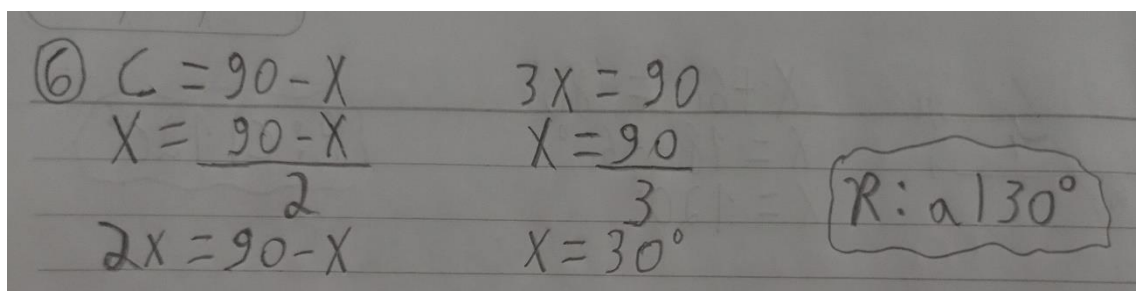 ⑥ C = 90 - X
X = 90 - X
2
2X = 90 - X
3X = 90
X = 90
3
X = 30°
R: a) 30°